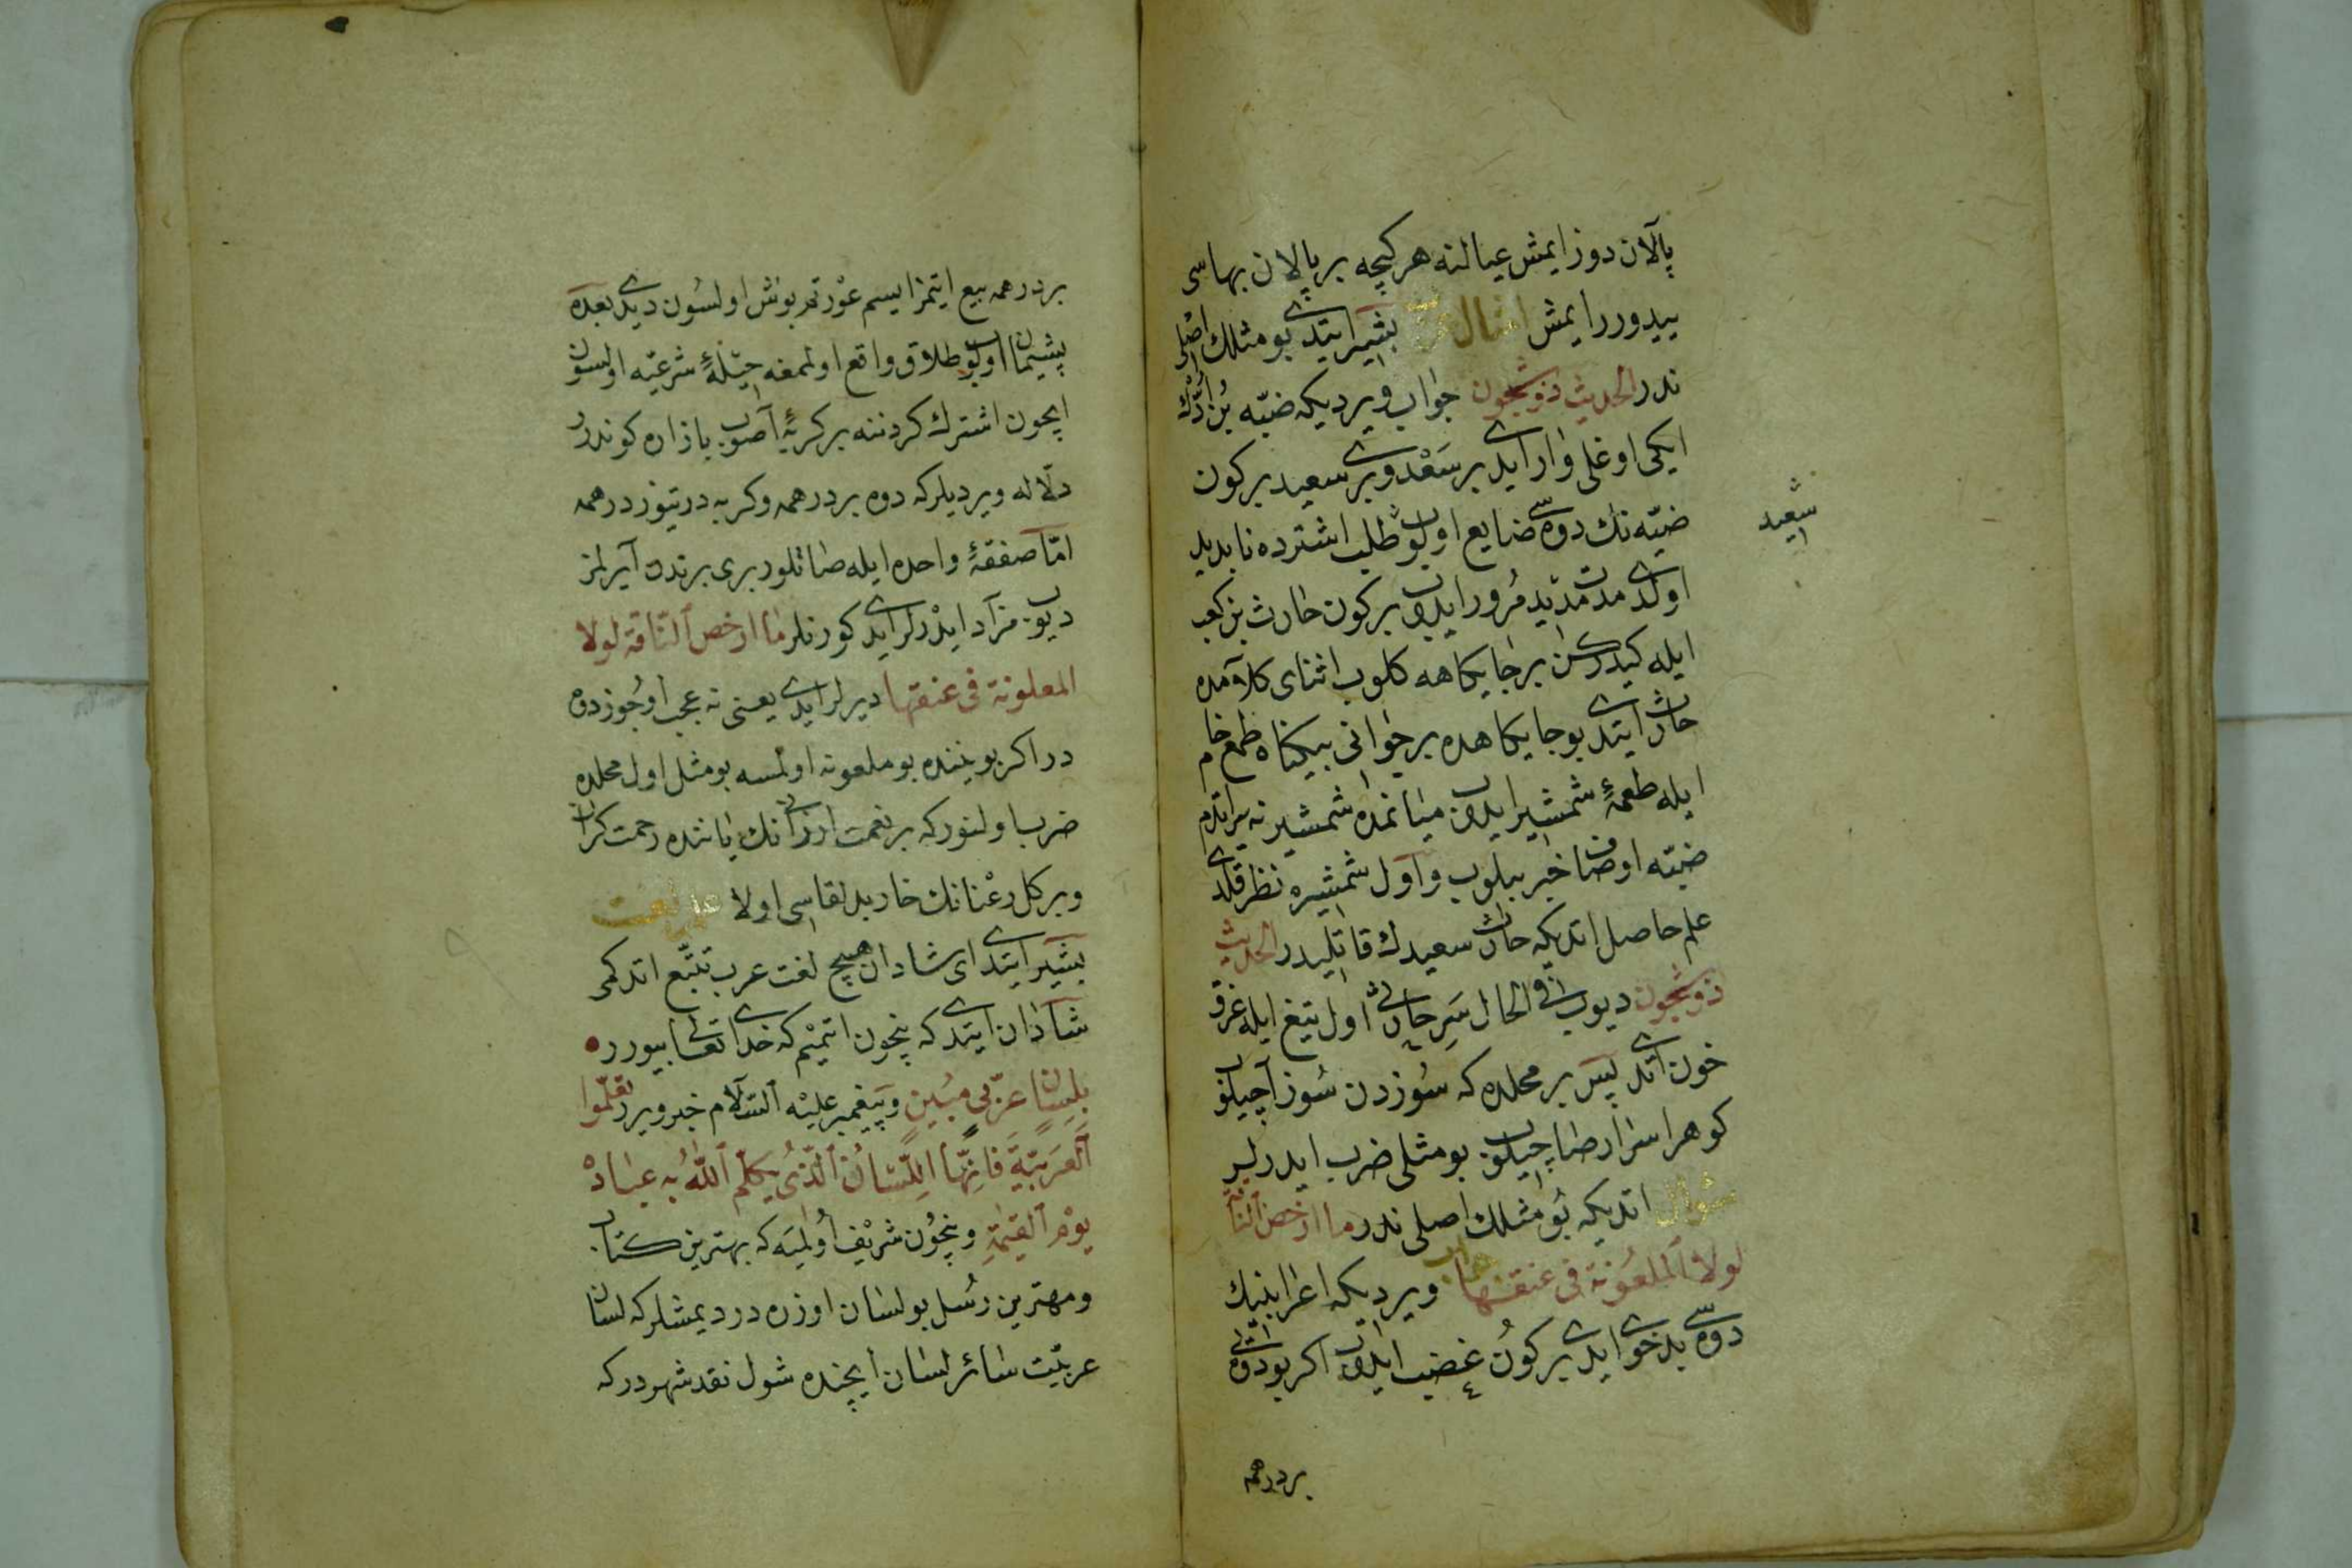 پالان دوزایمش عیالنه هر کیجه بر پالان بهاسی
ییدورر ایمش امثال بشیر ایتدی بو مثلك اصلی
ندر الحدیث ذو شجون جواب ویردیکه ضبّه بن ادّك
ایکی اوغلی وار ایدی بر سَعْد و بری سعید بر کون
ضبّه نك دوه سی ضایع اولوب طلب اشترده ناپدید
اولدی مدت مدید مُرور ایدوب بر کون حارث بن کعب
ایله کیدرکن بر جایکاهه کلوب اثنای کلامده
حارث ایتدی بو جایکاهده بر جوانی بیکناه طمع خام
ایله طعمهٔ شمشیر ایدوب میانمده شمشیر
ضبّه اوصافن خبر بیلوب و اول شمشیره نظر قلدی
علم حاصل اتدیکه حارث سعیدك قاتلیدر الحدیث
ذو شجون دیوب فی الحال سَرِ حارثی اول تیغ ایله غرق
خون اتدی پس بر محلده که سُوزدن سُوز آچیلوب
کوهر اسرار صاچیلوب بو مثلی ضرب ایدرلر
سؤال اتدیکه بو مثلك اصلی ندر ما ارخص الناقة
لولا الملعونة فی عنقها جواب ویردیکه اعرابینیك
دوه سی بدخوی ایدی بر کون غضب ایدوب اکر بو دوه یی
بر درهمه
سعید
بر درهمه بیع ایتمز ایسم عورتم بوش اولسون دیدی بعده
پشیمان اولوب طلاق واقع اولمغه حیلهٔ شرعیّه اولسون
ایچون اشترك کردننه بر کربهٔ آصوب بازاره کوندرر
دلّاله ویردیلر که دوه بر درهمه و کربه درتیوز درهمه
امّا صفقهٔ واحده ایله صاتلور بری برندن آیرلمز
دیوب مزاد ایدرلر ایدی کورنلر ما ارخص الناقة لولا
المعلونة فی عنقها دیرلر ایدی یعنی نه عجب اوجوز دوه
در اکر بویننده بو ملعونه اولمسه بو مثل اول محلده
ضرب اولنور که بر نعمت ارزانینك یاننده زحمت کران
و بر کل رعنانك خار بد لقاسی اولا
بشیر ایتدی ای شادان هیچ لغت عرب تتبّع اتدکمی
شادان ایتدی که نیچون اتمیم که خدای تعالی بیورر
بلسان عربی مبین و پیغمبر علیه السلام خبر ویرر تعلّموا
العربیّة فانّها اللّسان الّذی یکلّم الله به عباده
یوم القیٰمة و نیچون شریف اولمیه که بهترین کتاب
و مهترین رُسل بو لسان اوزره در دیمشلر که لسان
عربیّت سائر لسان ایچنده شول نقد شهردر که